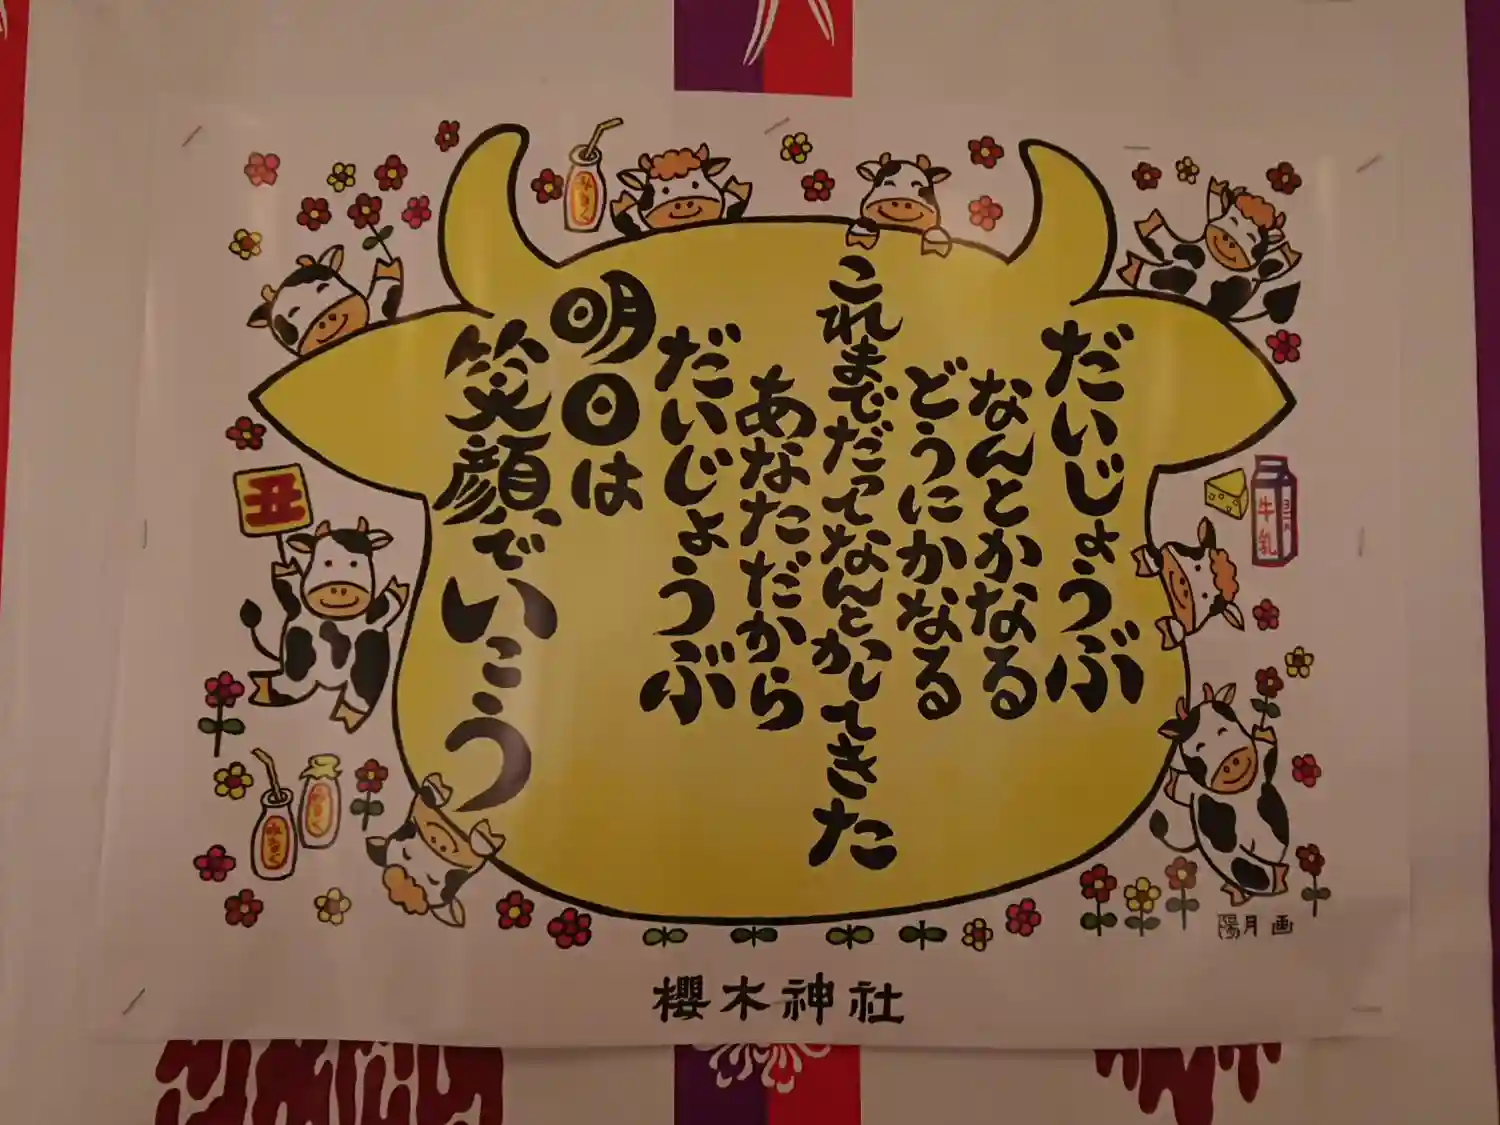 だいじょうぶ
なんとかなる
どうにかなる
これまでだってなんとかしてきた
あなただから
だいじょうぶ
明日は
笑顔でいこう
丑
みるく
みるく
みるく
牛乳
陽月画
櫻木神社